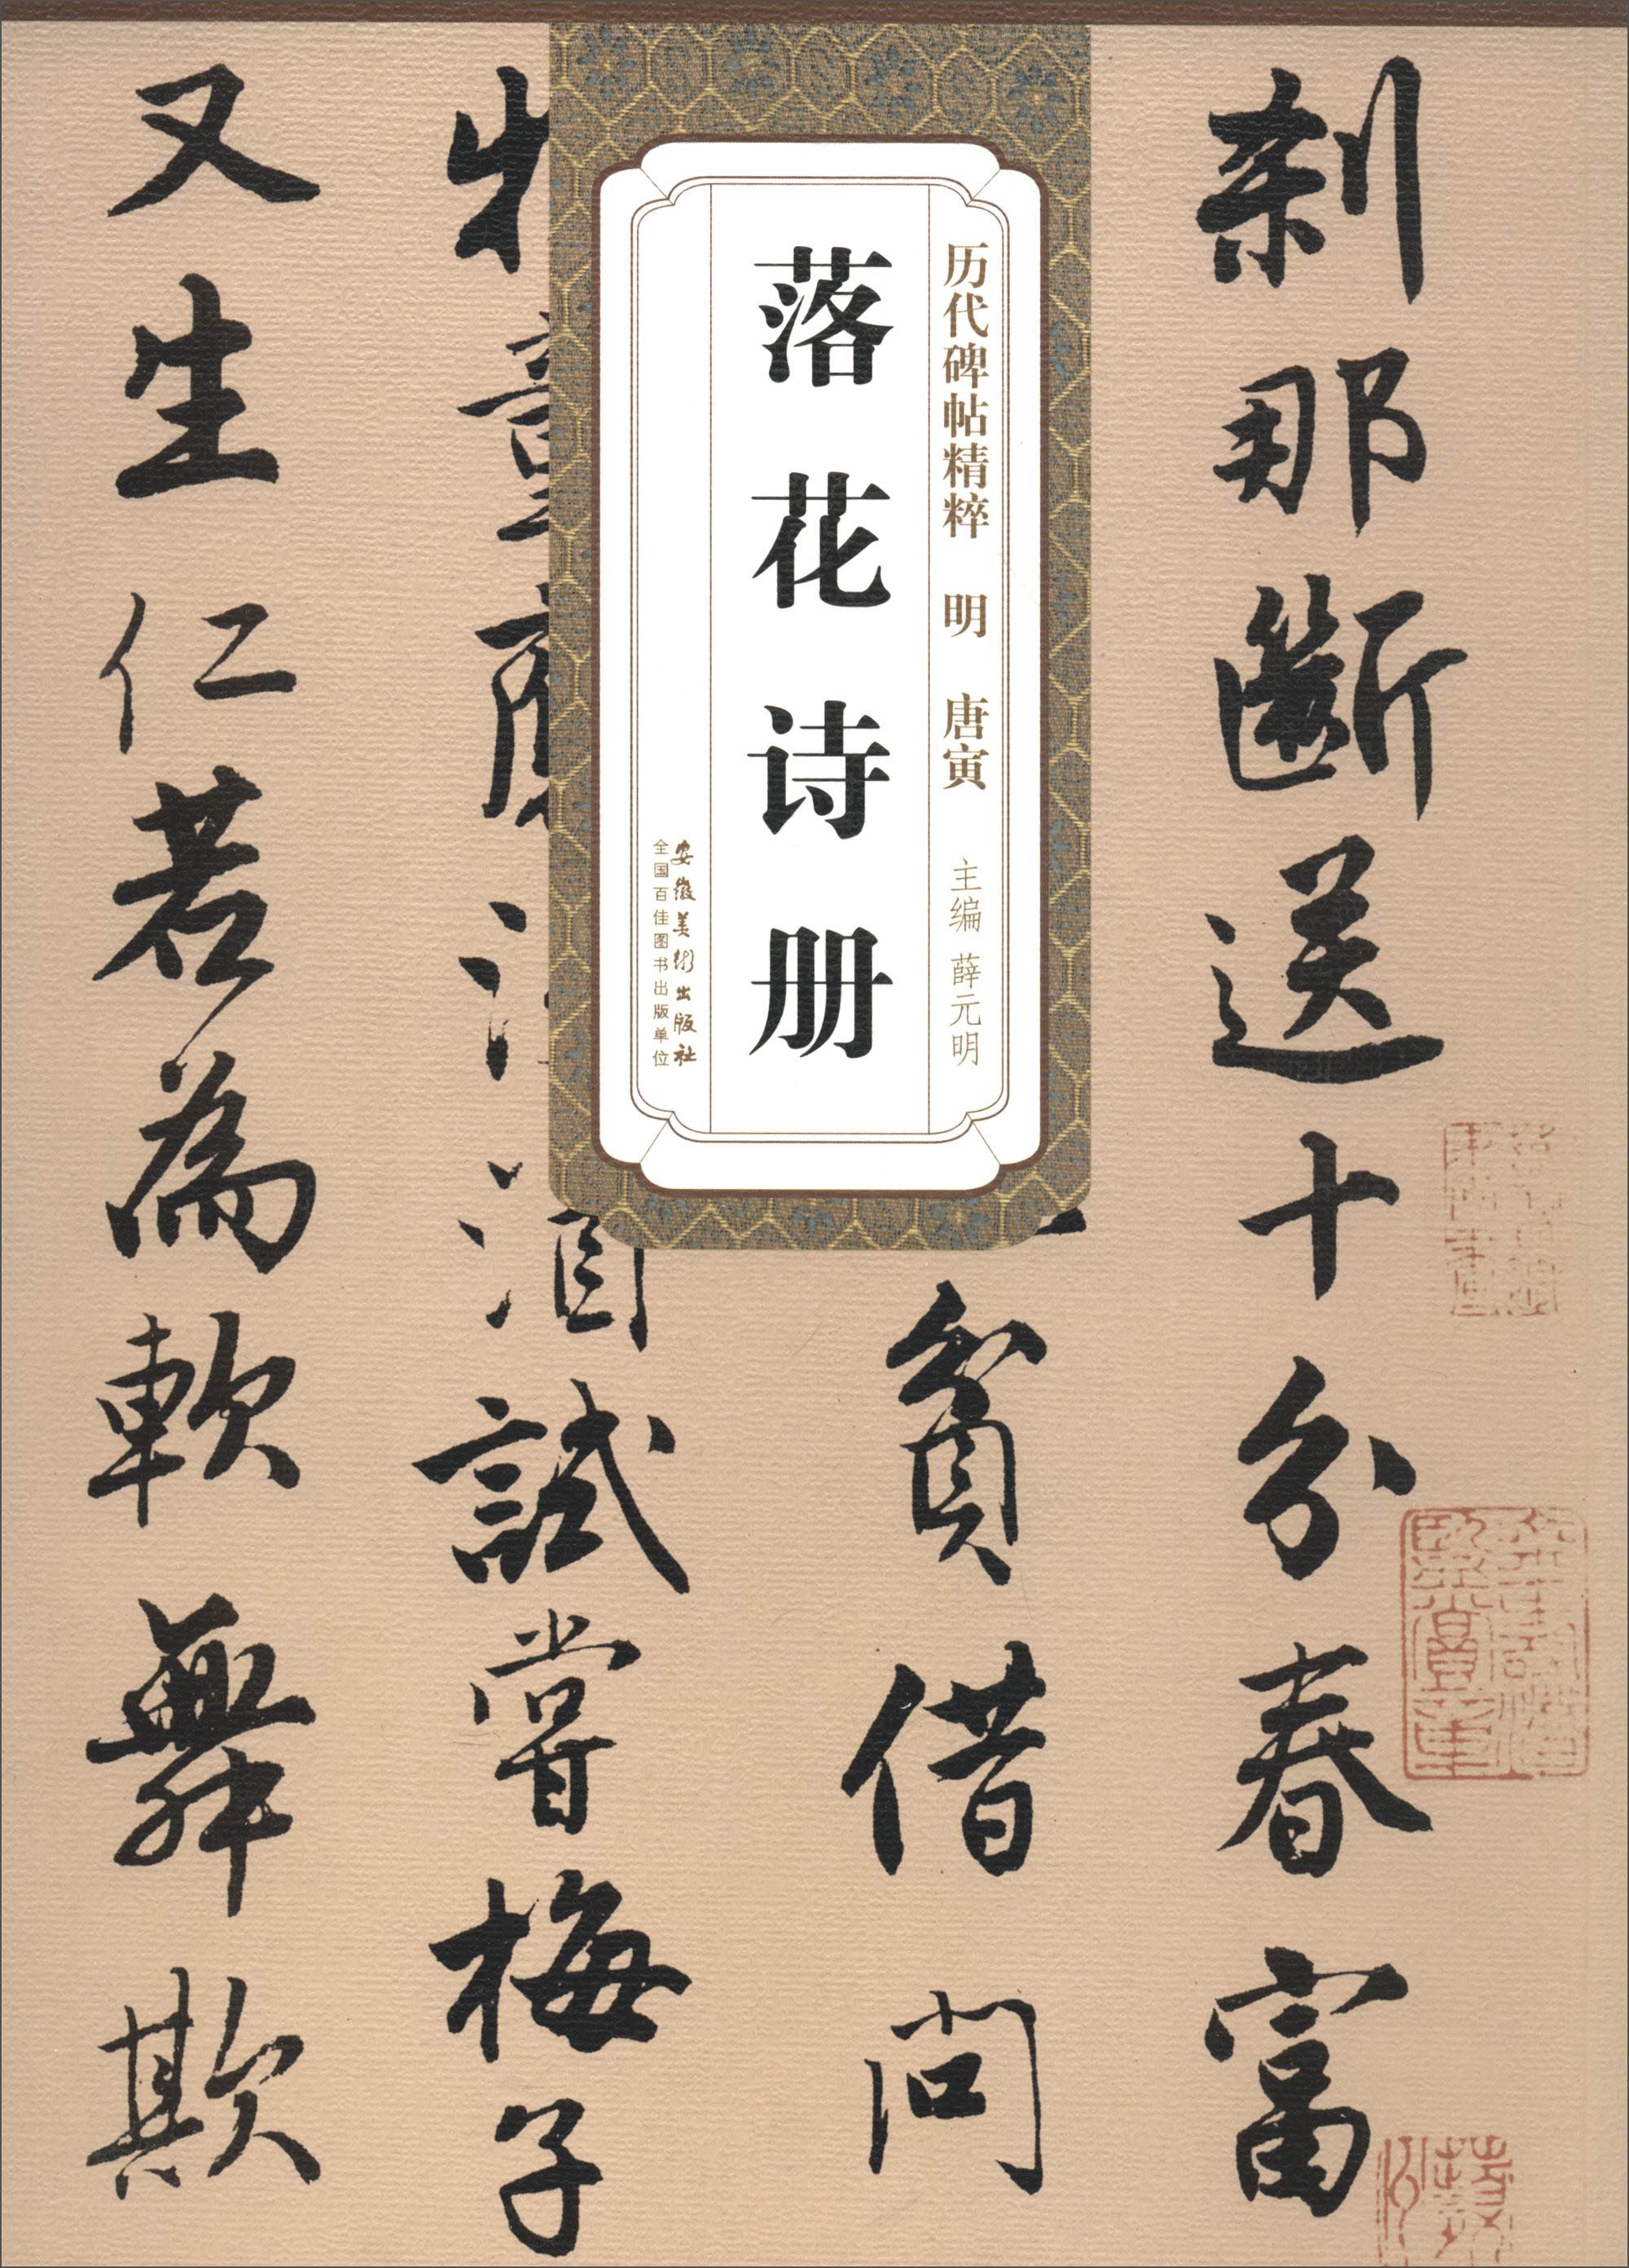 刹那斷送十分春富
貧借問
試嘗梅子
又生仁若為軟舞欺
历代碑帖精粹 明 唐寅 主编 薛元明
落花诗册
安徽美術出版社
全国百佳图书出版单位